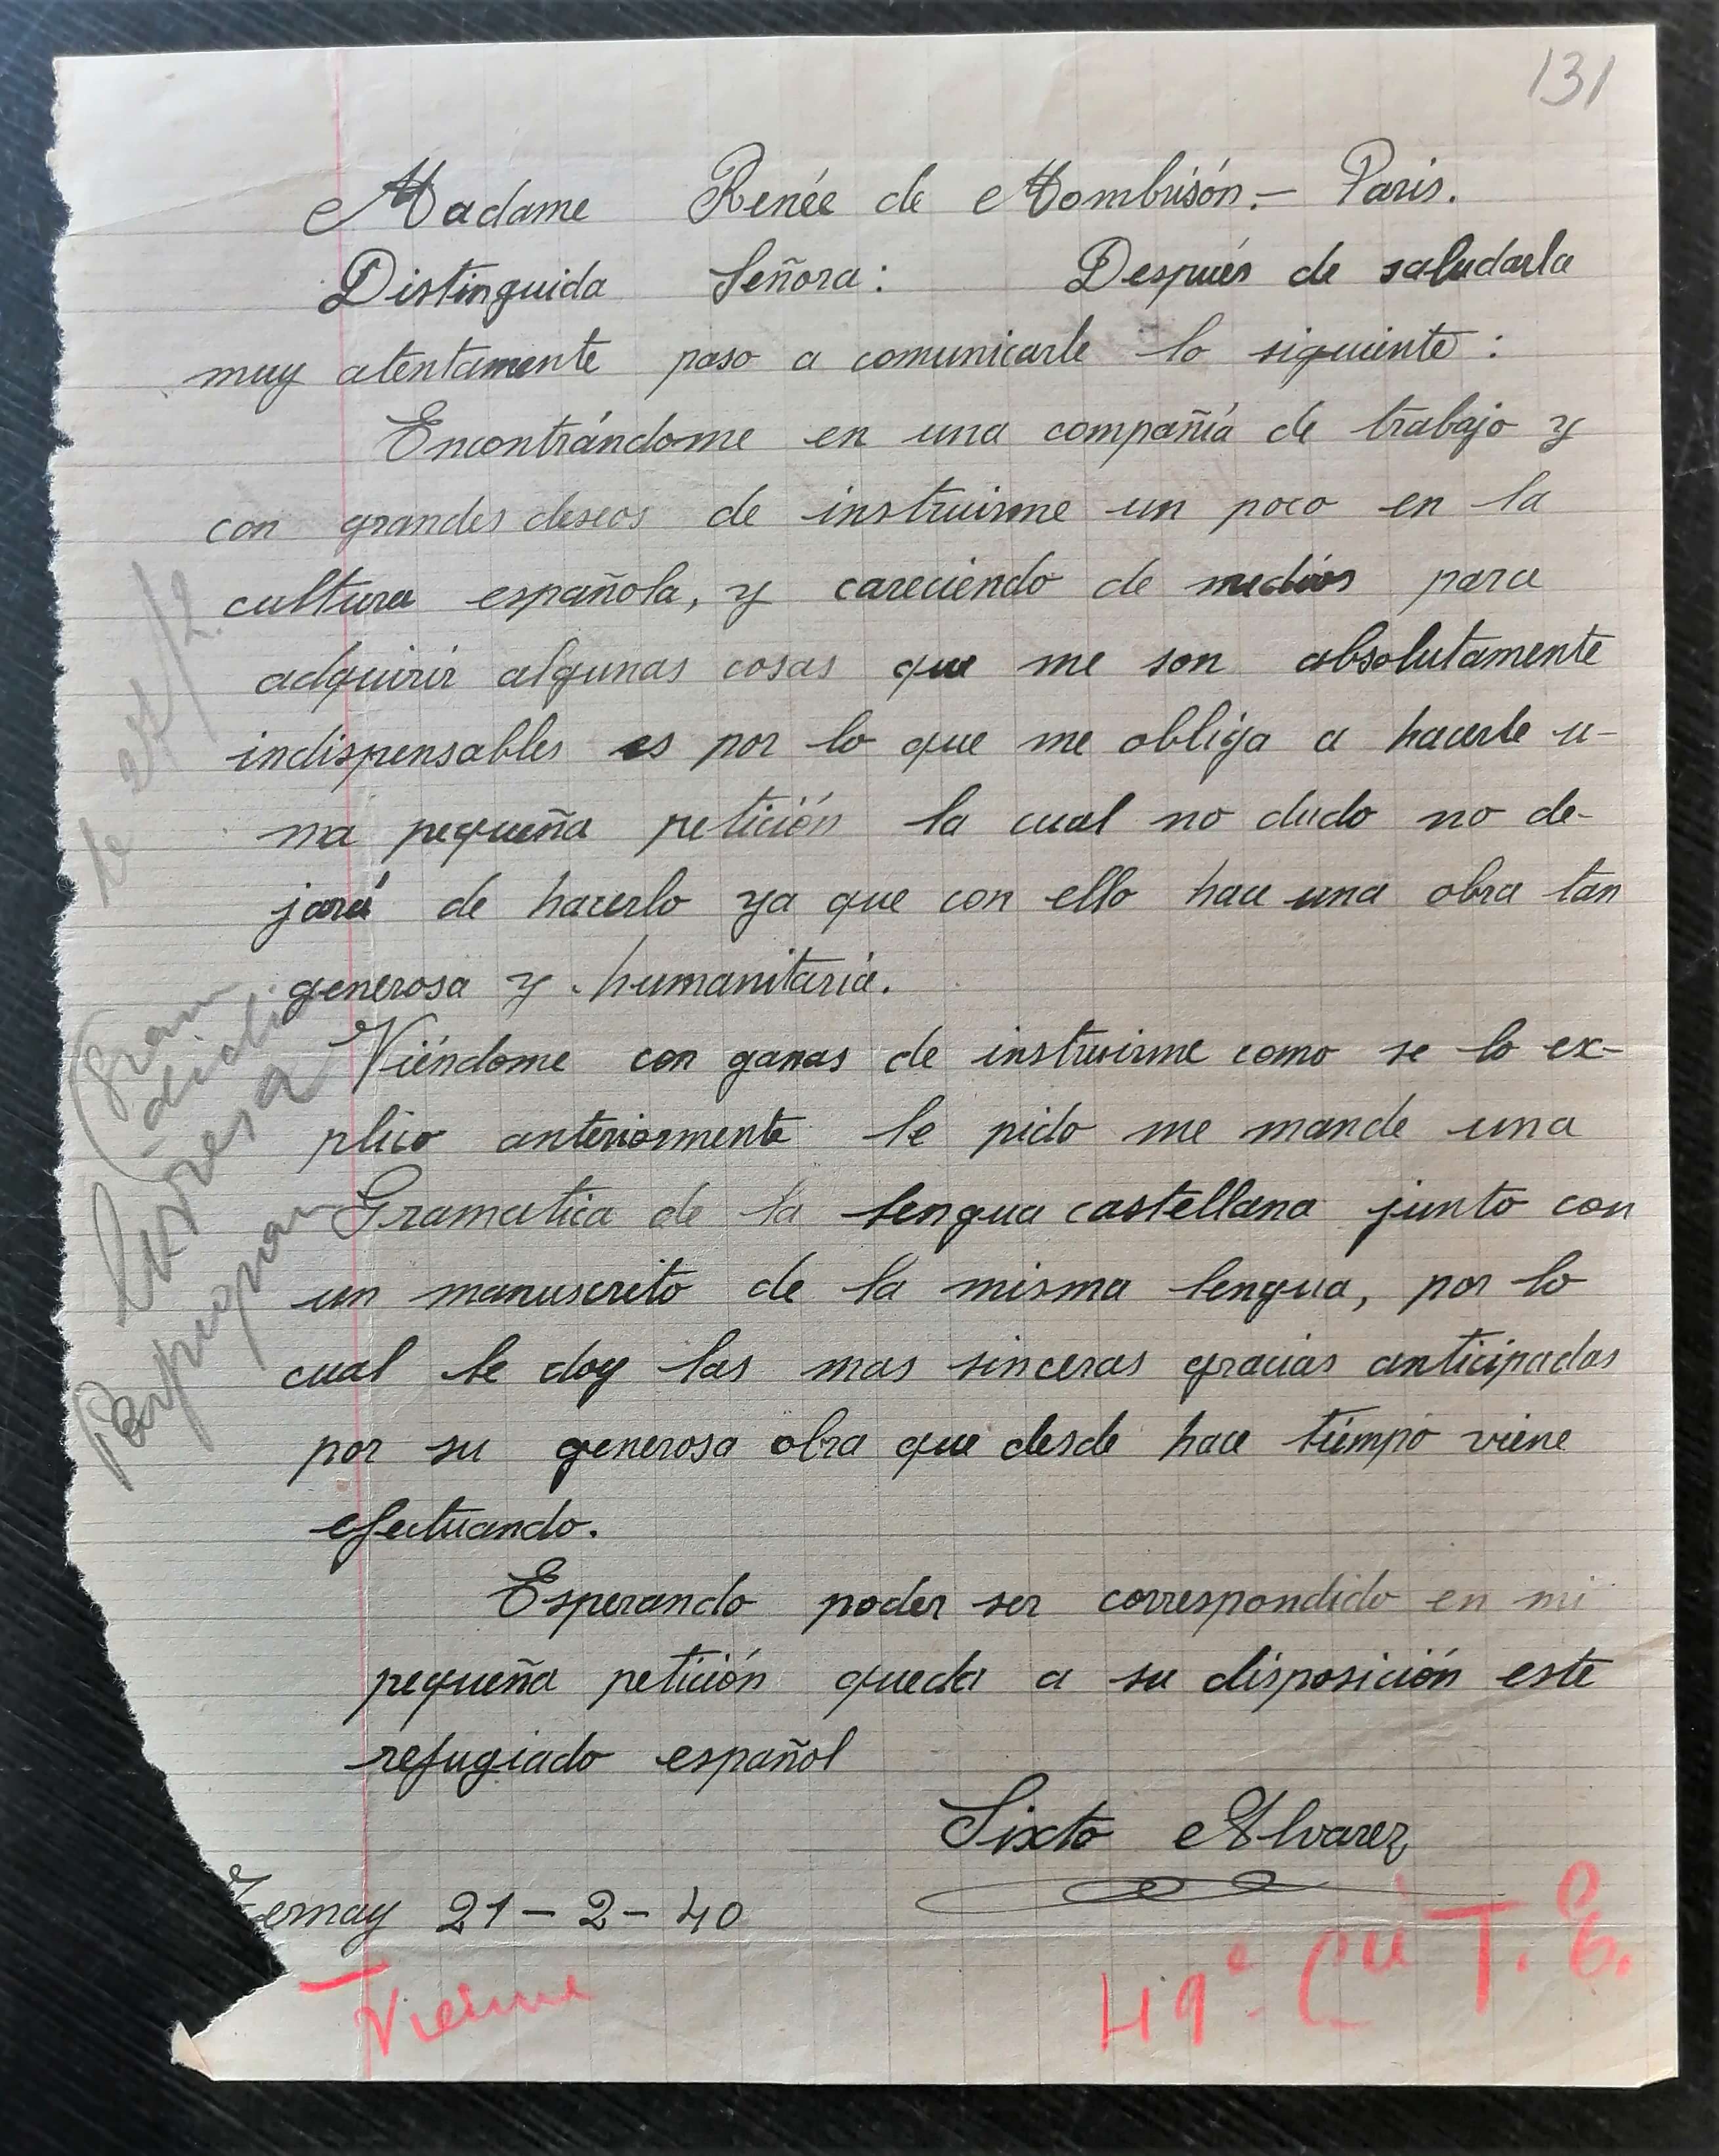 131
Madame Renée de Mombrisón.- Paris.
Distinguida Señora: Después de saludarla
muy atentamente paso a comunicarle lo siguiente:
Encontrándome en una compañía de trabajo y
con grandes deseos de instruirme un poco en la
cultura española, y careciendo de medios para
adquirir algunas cosas que me son absolutamente
indispensables es por lo que me obliga a hacerle u-
na pequeña petición la cual no dudo no de-
jará de hacerlo ya que con ello hace una obra tan
generosa y humanitaria.
Viéndome con ganas de instruirme como se lo ex-
plico anteriormente le pido me mande una
Gramatica de la lengua castellana junto con
un manuscrito de la misma lengua, por lo
cual le doy las mas sinceras gracias anticipadas
por su generosa obra que desde hace tiempo viene
efectuando.
Esperando poder ser correspondido en mi
pequeña petición queda a su disposición este
refugiado español
Sixto Alvarez
Ternay 21-2-40
Vienne
49e Cie T. E.
le 27/2
Gram
Perpignan